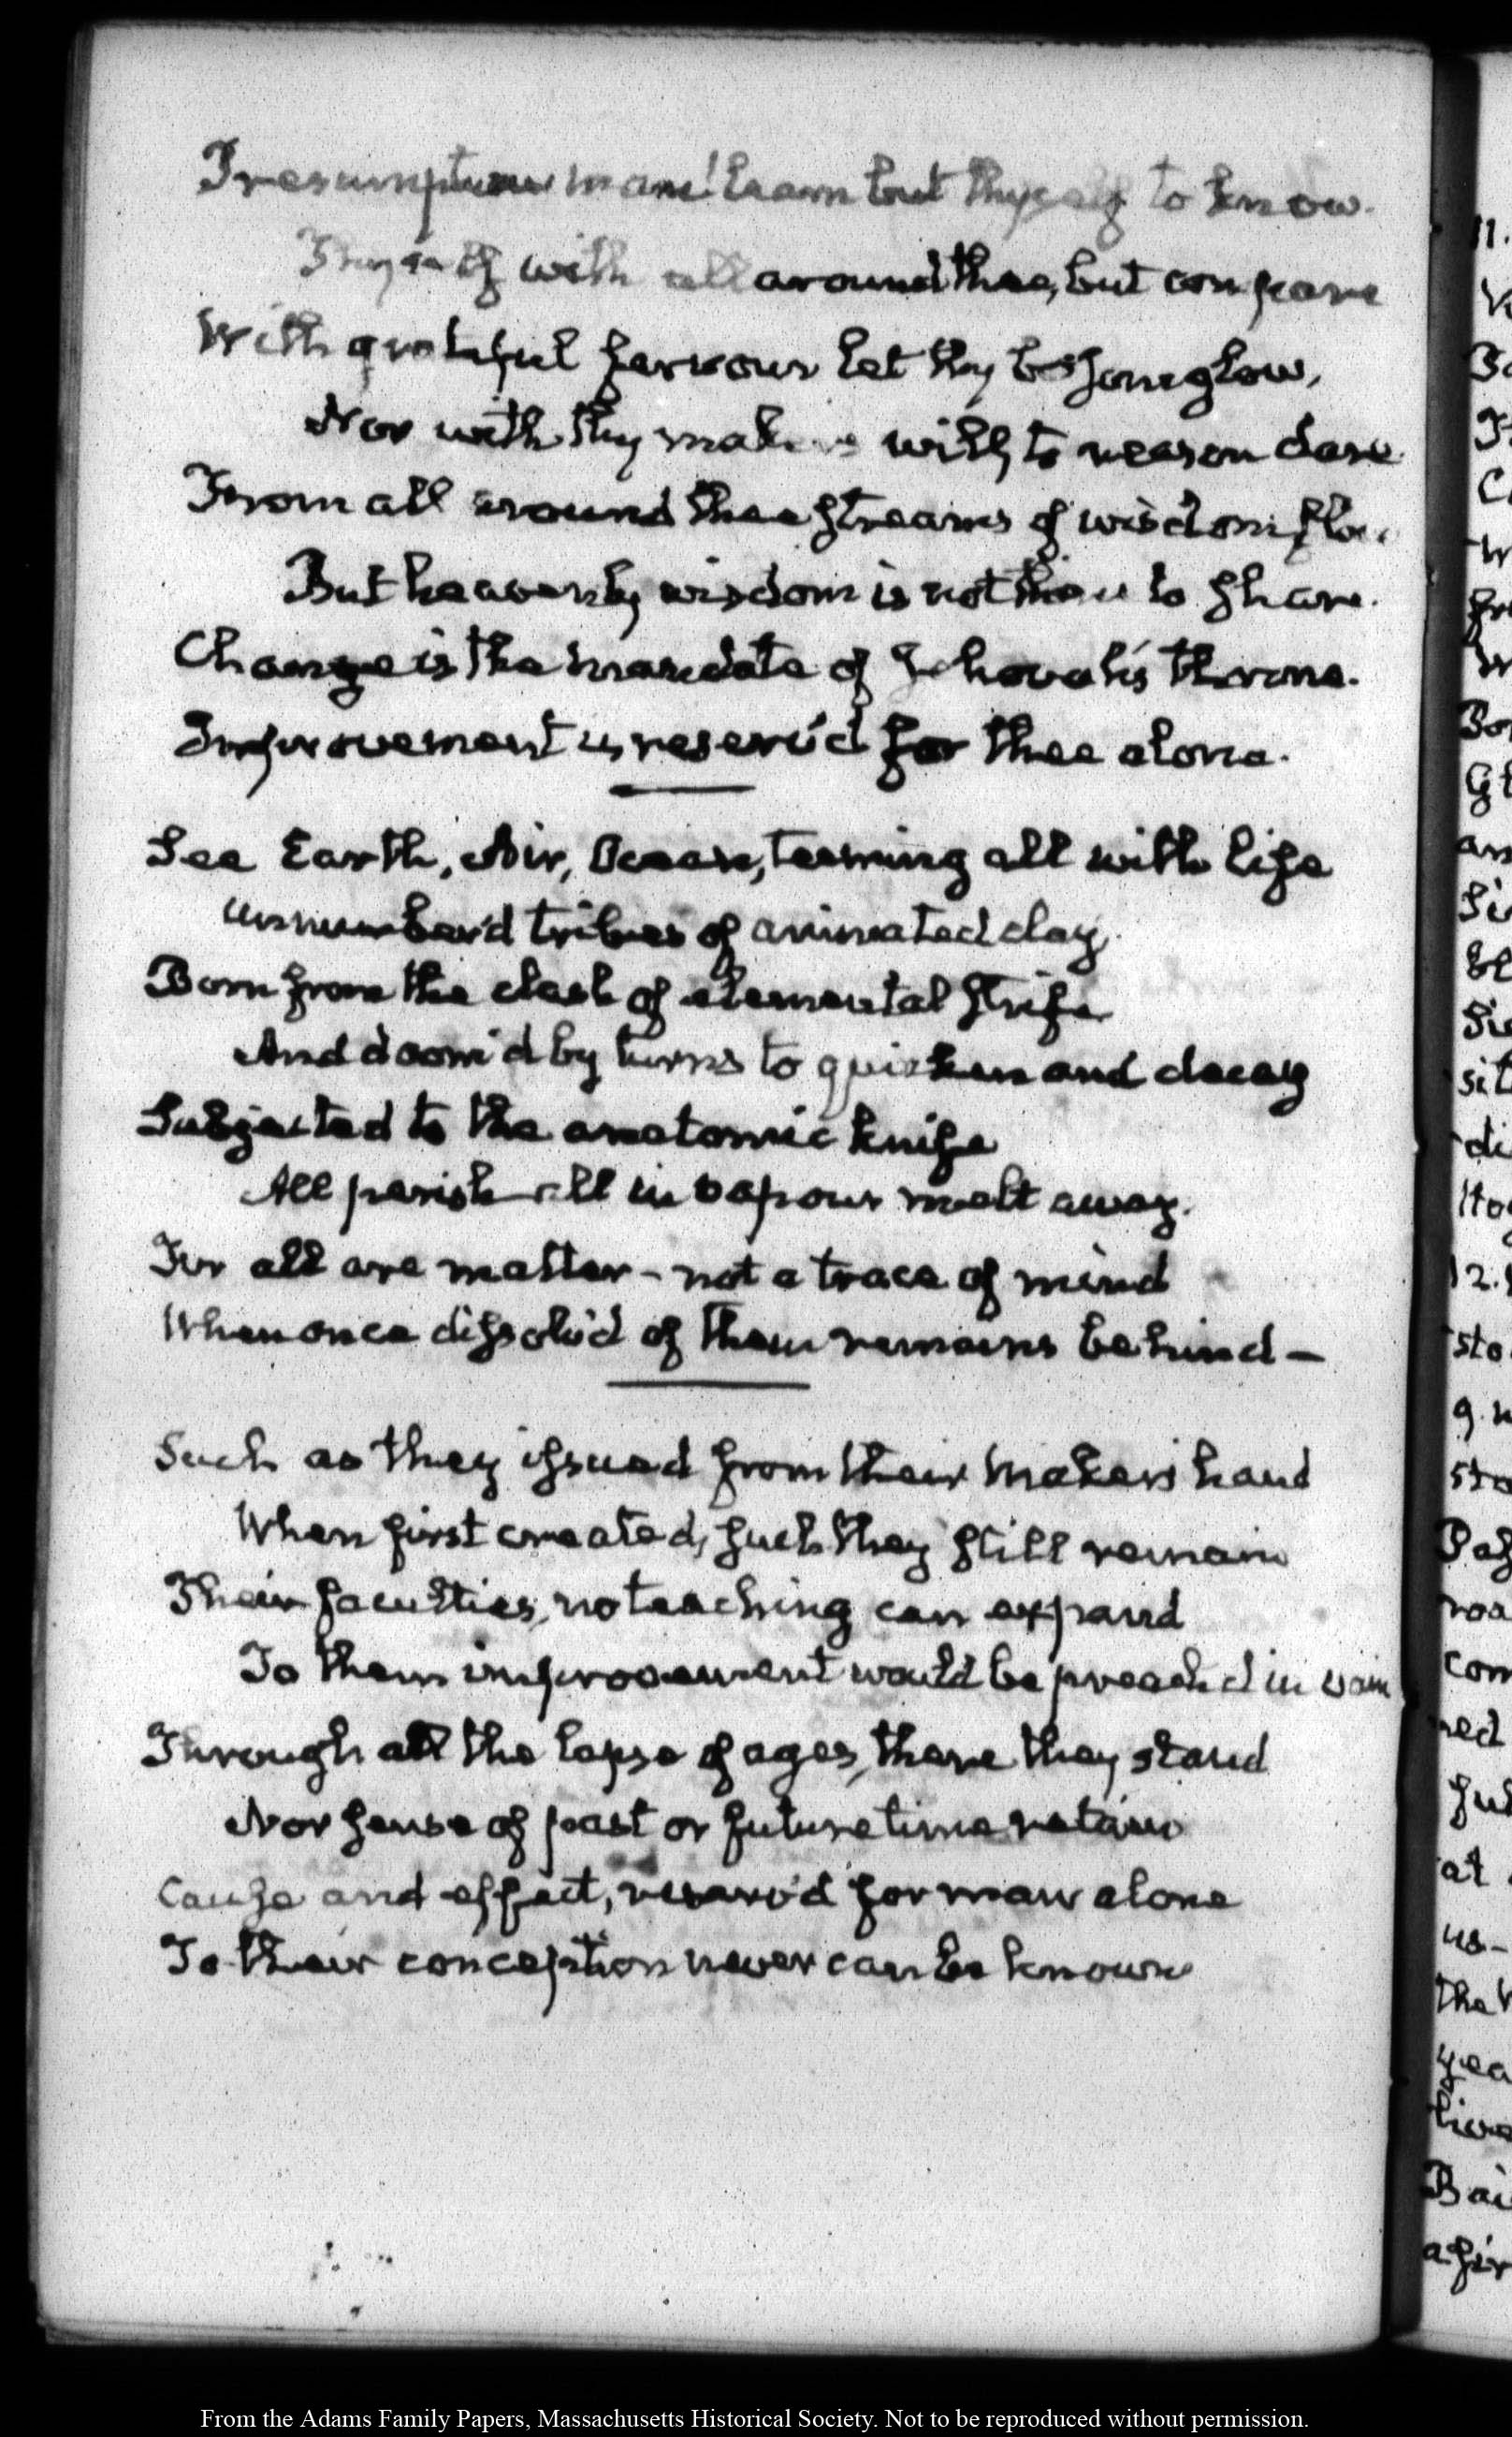 Presumptuous man! learn but thyself to know.
Thyself with all around thee, but compare
With grateful fervour let thy bosom glow,
Nor with thy maker's will, to reason dare.
From all around thee streams of wisdom flow
But heavenly wisdom is not thine to share.
Change is the mandate of Jehovah's throne.
Improvement is reserv'd for thee alone.
See Earth, Air, Ocean, teeming all with life
Unnumber'd tribes of animated clay,
Born from the clash of elemental strife
And doom'd by turns to quicken and decay
Subjected to the anatomic knife
All perish all in vapour melt away.
For all are matter - not a trace of mind
When once dissolv'd of them remains behind -
Such as they issued from their maker's hand
When first created, such they still remain
Their faculties, no teaching can expand
To them improvement would be preach'd in vain
Through all the lapse of ages, there they stand
Nor sense of past or future time retain
Cause and effect, reserv'd for man alone
To their conception never can be known
11.
12.
sto
g.
sto
com
red
at
us-
the
yea
live
Bai
a fir
From the Adams Family Papers, Massachusetts Historical Society. Not to be reproduced without permission.